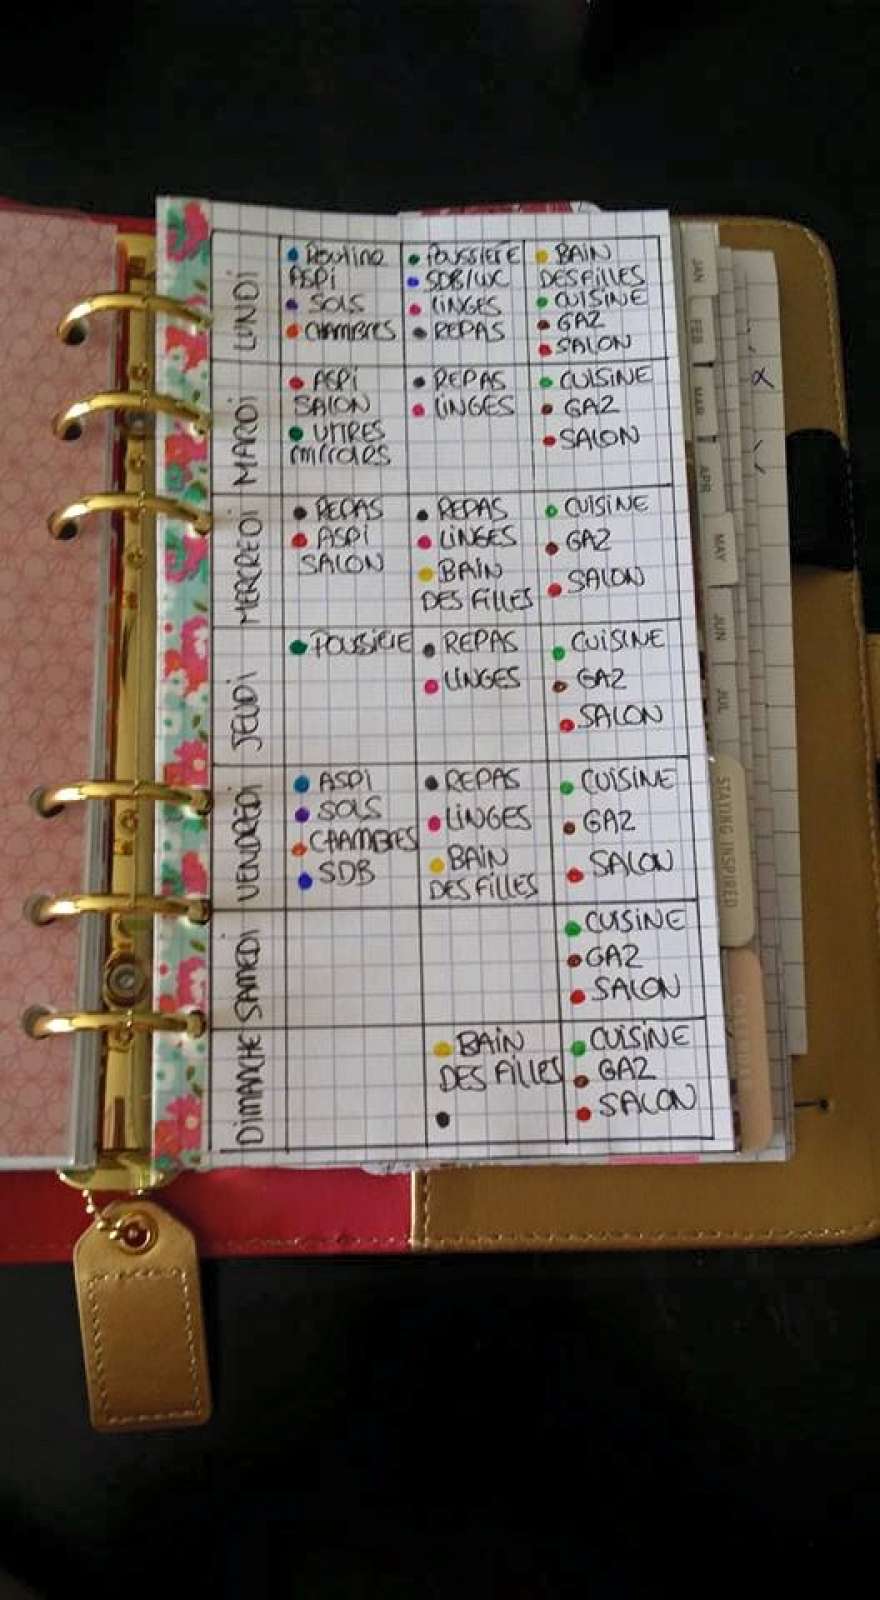 LUNDI
Routine
ASPI
SOLS
CHAMBRES
POUSSIERE
SDB/WC
LINGES
REPAS
BAIN
DES FILLES
CUISINE
GAZ
SALON
MARDI
ASPI
SALON
VITRES
miroirs
REPAS
LINGES
CUISINE
GAZ
SALON
MERCREDI
REPAS
ASPI
SALON
REPAS
LINGES
BAIN
DES FILLES
CUISINE
GAZ
SALON
JEUDI
POUSSIERE
REPAS
LINGES
CUISINE
GAZ
SALON
VENDREDI
ASPI
SOLS
CHAMBRES
SDB
REPAS
LINGES
BAIN
DES FILLES
CUISINE
GAZ
SALON
SAMEDI
CUISINE
GAZ
SALON
DIMANCHE
BAIN
DES FILLES
CUISINE
GAZ
SALON
JAN
FEB
MAR
APR
MAY
JUN
JUL
STAYING INSPIRED